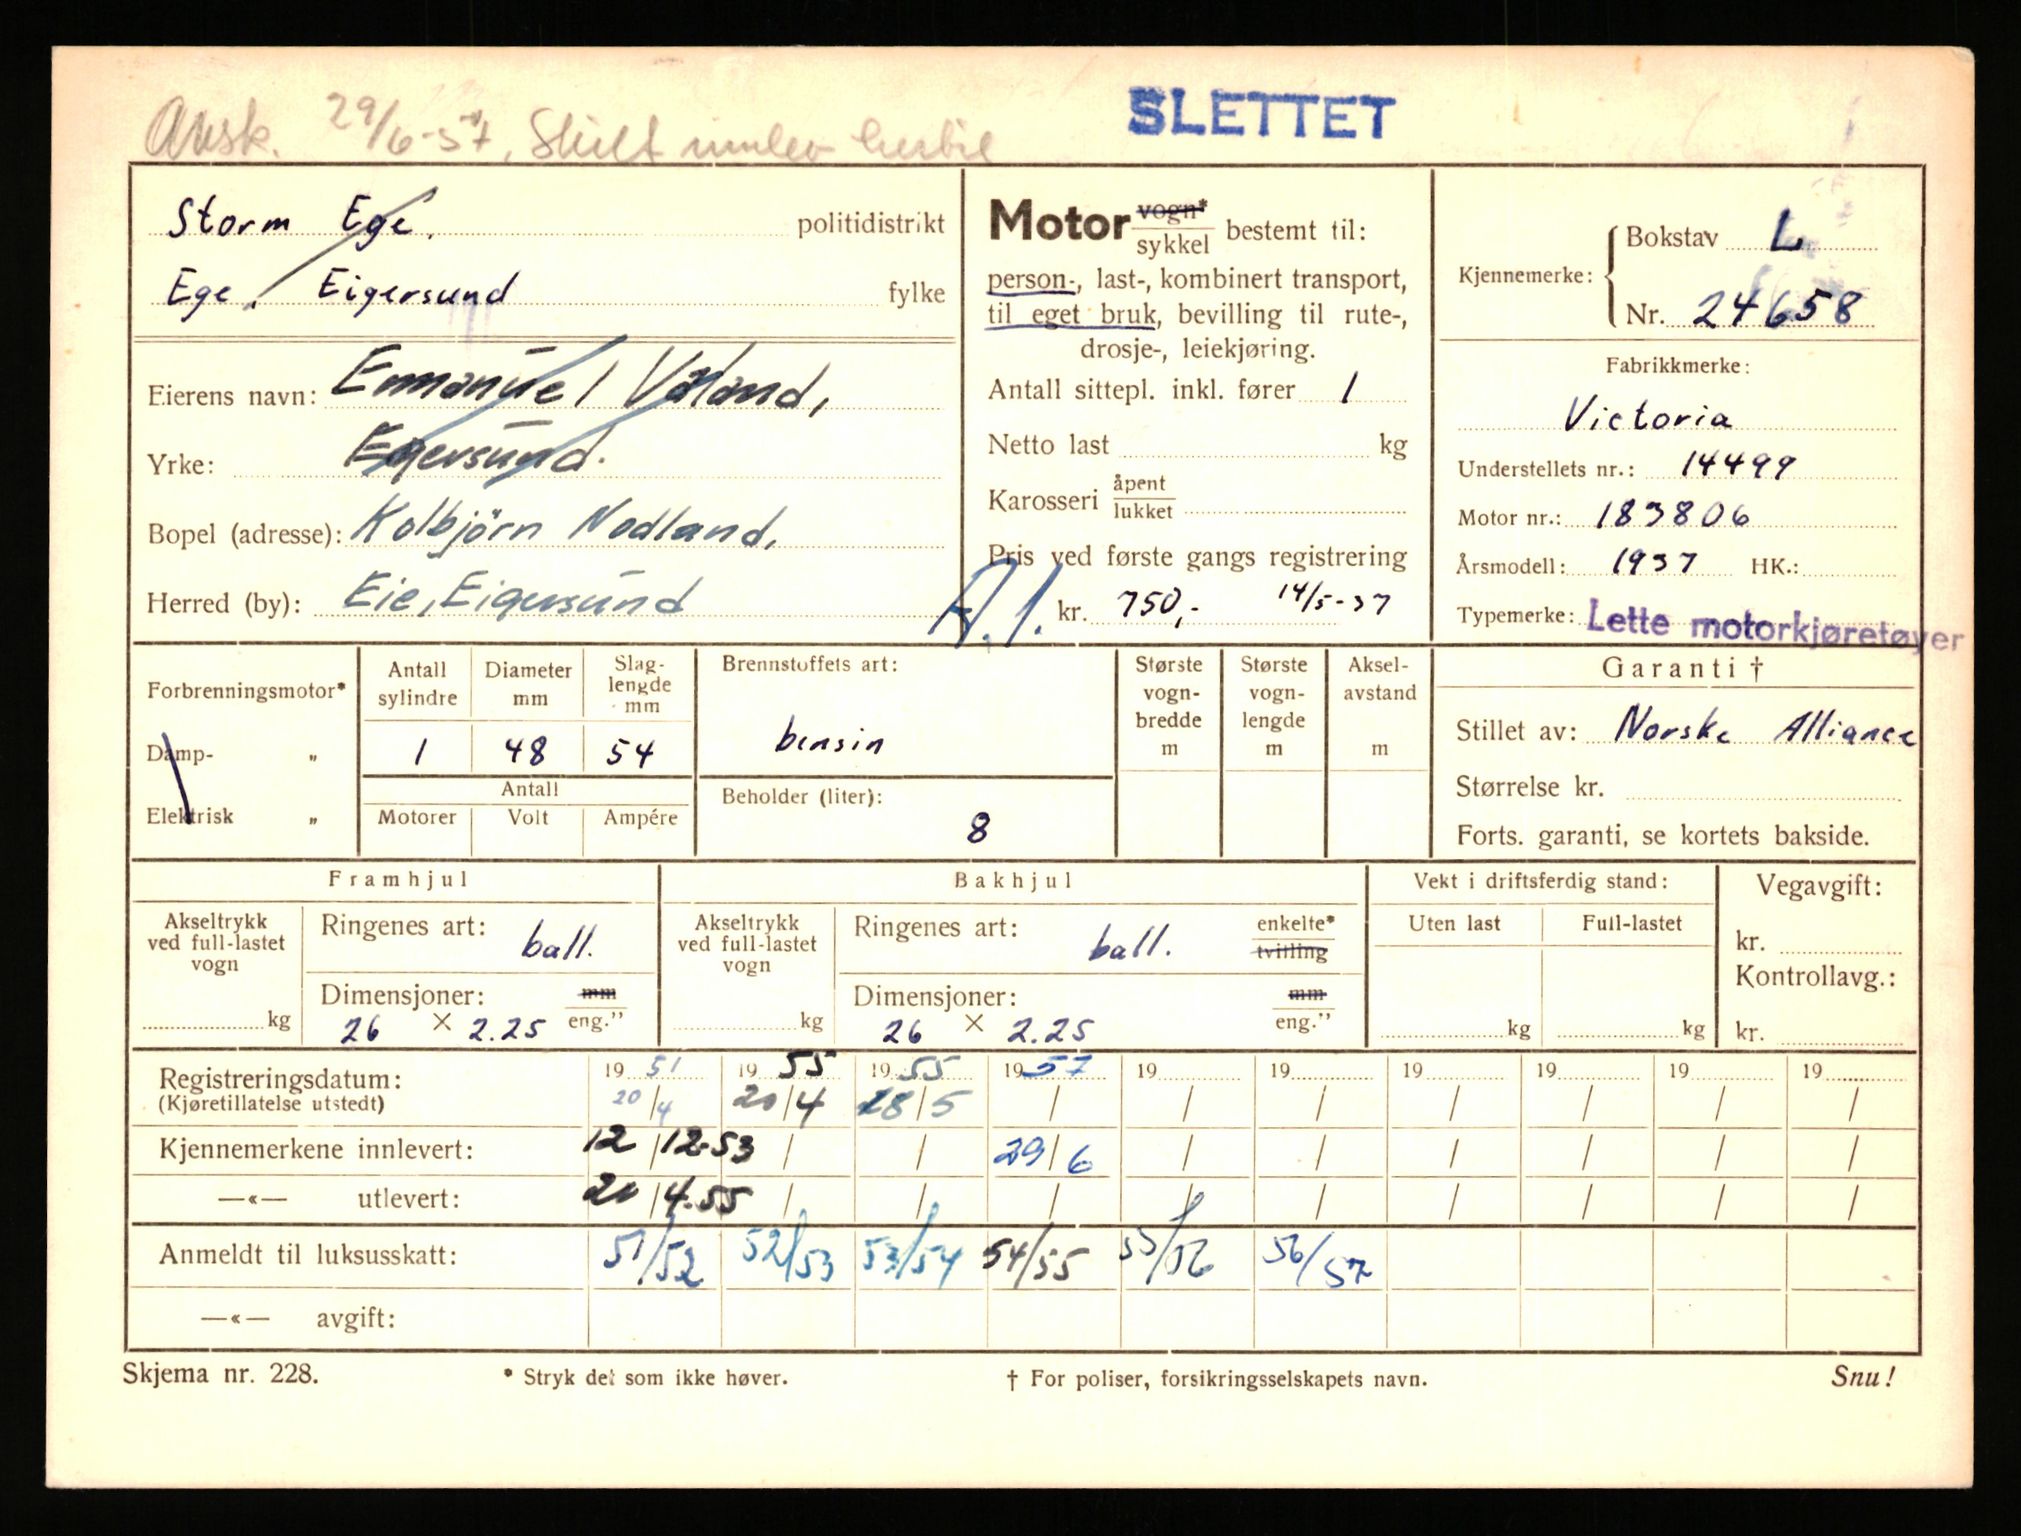 Avsk. 29/6-57, Skilt innlev
SLETTET
Storm Ege. politidistrikt
Ege, Eigersund fylke
Eierens navn: Emmanuel Våland,
Yrke: Egersund.
Bopel (adresse): Kolbjörn Nodland,
Herred (by): Eie, Eigersund
Motor vogn* sykkel bestemt til:
person-, last-, kombinert transport,
til eget bruk, bevilling til rute-,
drosje-, leiekjøring.
Antall sittepl. inkl. fører 1
Netto last kg
Karosseri åpent lukket
Pris ved første gangs registrering
A.1. kr. 750,- 14/5-37
Kjennemerke: Bokstav L
Nr. 24658
Fabrikkmerke:
Victoria
Understellets nr.: 14499
Motor nr.: 183806
Årsmodell: 1937 HK.:
Typemerke: Lette motorkjøretøyer
Forbrenningsmotor*
Damp- „
Elektrisk „
Antall sylindre 1
Diameter mm 48
Slag- lengde mm 54
Antall
Motorer Volt Ampére
Brennstoffets art:
bensin
Beholder (liter):
8
Største vogn- bredde m
Største vogn- lengde m
Aksel- avstand m
Garanti †
Stillet av: Norske Alliance
Størrelse kr.
Forts. garanti, se kortets bakside.
Framhjul
Akseltrykk ved full-lastet vogn
kg
Ringenes art: ball.
Dimensjoner: mm eng.”
26 × 2.25
Bakhjul
Akseltrykk ved full-lastet vogn
kg
Ringenes art: ball. enkelte* tvilling
Dimensjoner: mm eng.”
26 × 2.25
Vekt i driftsferdig stand:
Uten last Full-lastet
kg kg
Vegavgift:
kr.
Kontrollavg.:
kr.
Registreringsdatum: 19 51 19 55 19 55 19 57 19 19 19 19 19 19
(Kjøretillatelse utstedt) 20/4 20/4 28/5 / / / / / / /
Kjennemerkene innlevert: 12/12-53 / / 29/6 / / / / / /
—«— utlevert: 20/4.55 / / / / / / / / /
Anmeldt til luksusskatt: 51/52 52/53 53/54 54/55 55/56 56/57
—«— avgift:
Skjema nr. 228. * Stryk det som ikke høver. † For poliser, forsikringsselskapets navn. Snu!